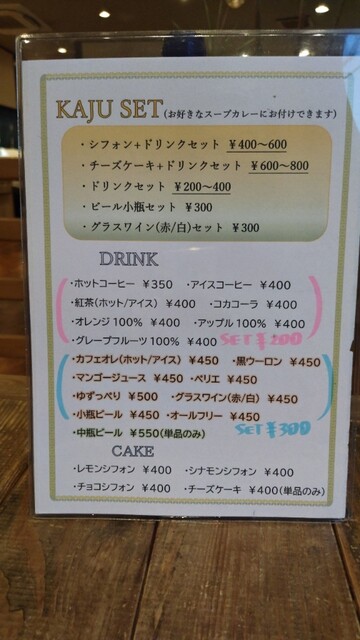 KAJU SET(お好きなスープカレーにお付けできます)
・シフォン+ドリンクセット ¥400〜600
・チーズケーキ+ドリンクセット ¥600〜800
・ドリンクセット ¥200〜400
・ビール小瓶セット ¥300
・グラスワイン(赤/白)セット ¥300
DRINK
・ホットコーヒー ¥350 ・アイスコーヒー ¥400
・紅茶(ホット/アイス) ¥400 ・コカコーラ ¥400
・オレンジ100% ¥400 ・アップル100% ¥400
・グレープフルーツ100% ¥400 SET ¥200
・カフェオレ(ホット/アイス) ¥450 ・黒ウーロン ¥450
・マンゴージュース ¥450 ・ペリエ ¥450
・ゆずっぺり ¥500 ・グラスワイン(赤/白) ¥450
・小瓶ビール ¥450 ・オールフリー ¥450
・中瓶ビール ¥550(単品のみ) SET ¥300
CAKE
・レモンシフォン ¥400 ・シナモンシフォン ¥400
・チョコシフォン ¥400 ・チーズケーキ ¥400(単品のみ)